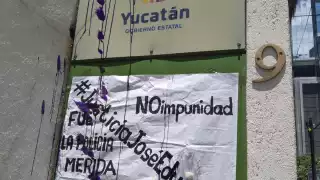 Yucatán
GOBIERNO ESTATAL
9
NOimpunidad
#JusticiaJosé
FUE
LA POLICIA
MERIDA